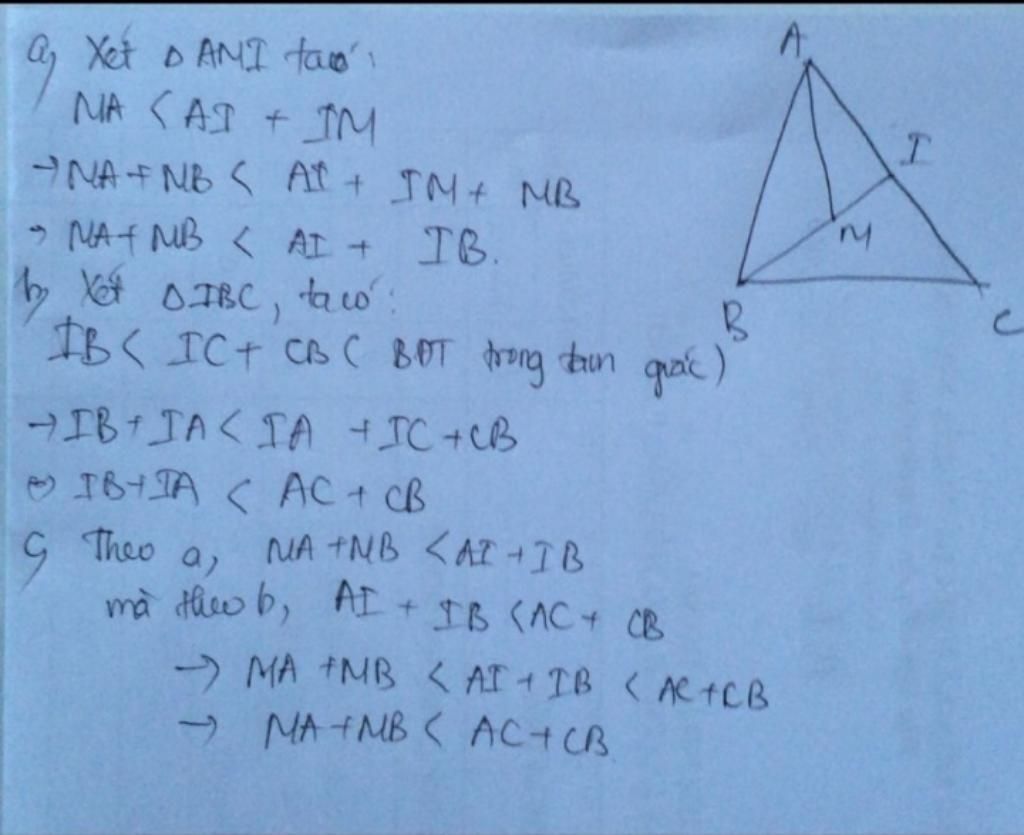 a, Xét △ AMI ta có:
MA < AI + IM
→ MA + MB < AI + IM + MB
→ MA + MB < AI + IB.
b, Xét △IBC, ta có:
IB < IC + CB ( BĐT trong tam giác )
→ IB + IA < IA + IC + CB
⇔ IB + IA < AC + CB
c, Theo a, MA + MB < AI + IB
mà theo b, AI + IB < AC + CB
→ MA + MB < AI + IB < AC + CB
→ MA + MB < AC + CB
A
I
M
B
C